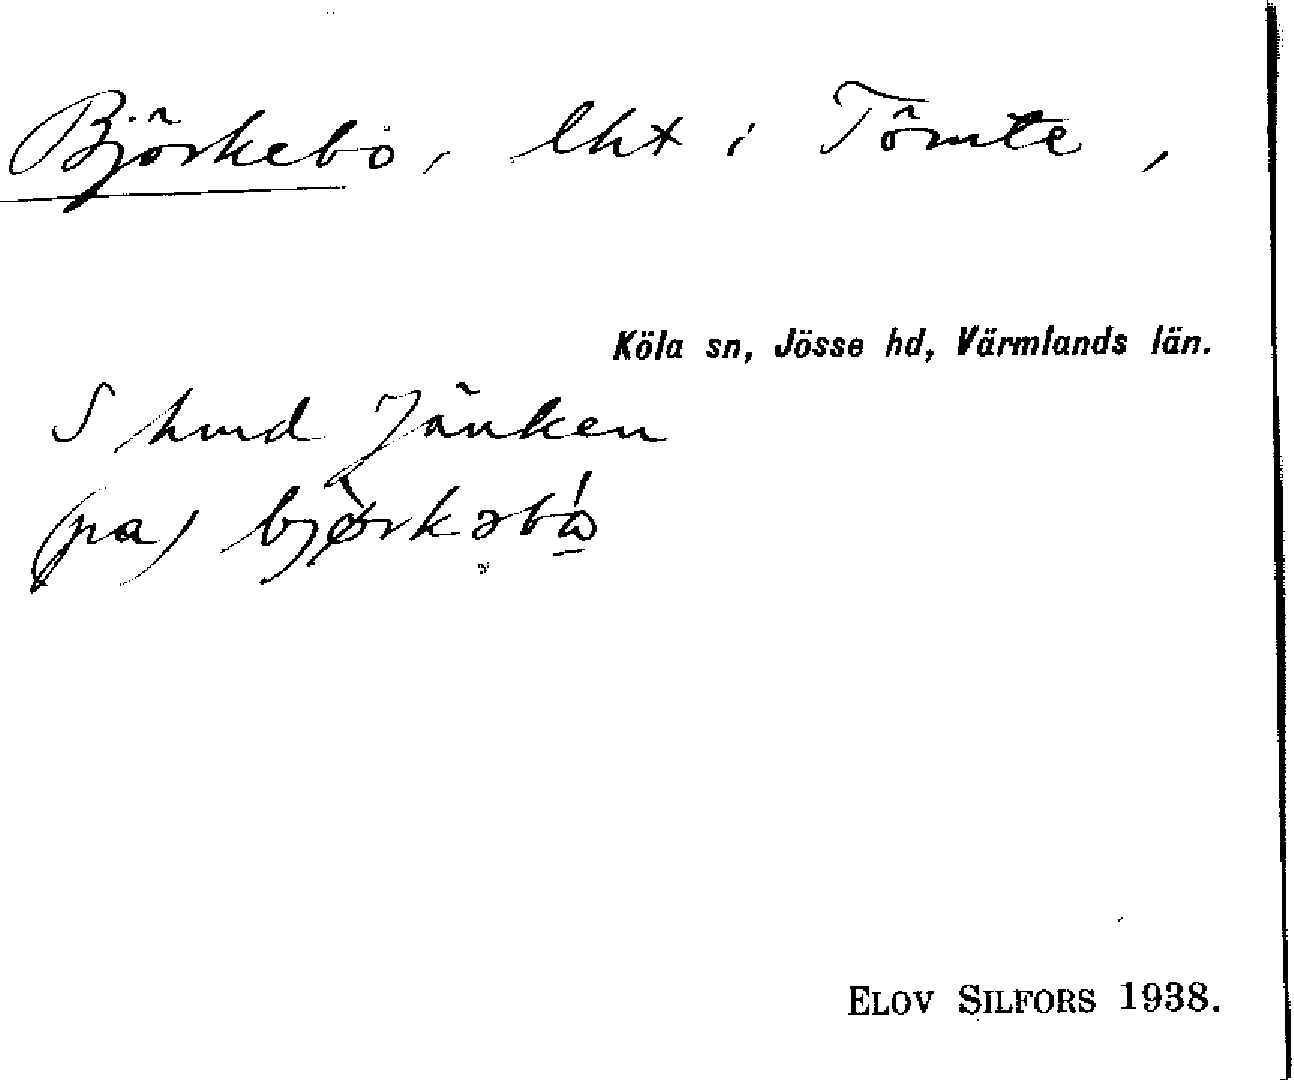 Björkebo, lht i Tömte,
Köla sn, Jösse hd, Värmlands län.
S hmd Jänken
(pa) bjørkəbo
ELOV SILFORS 1938.